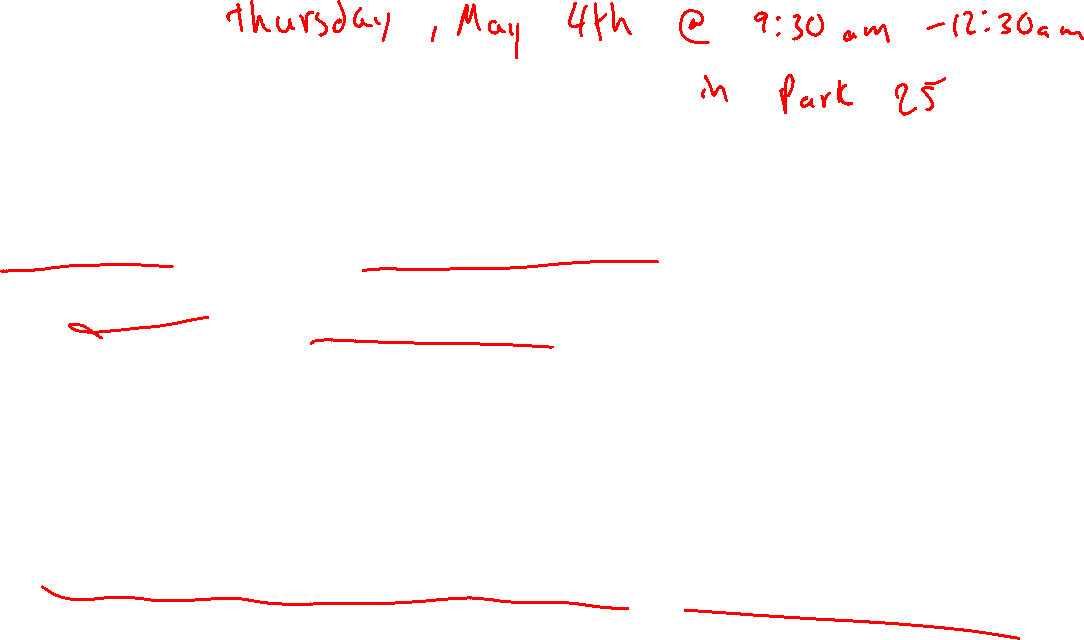 Thursday, May 4th @ 9:30 am -12:30am
in Park 25